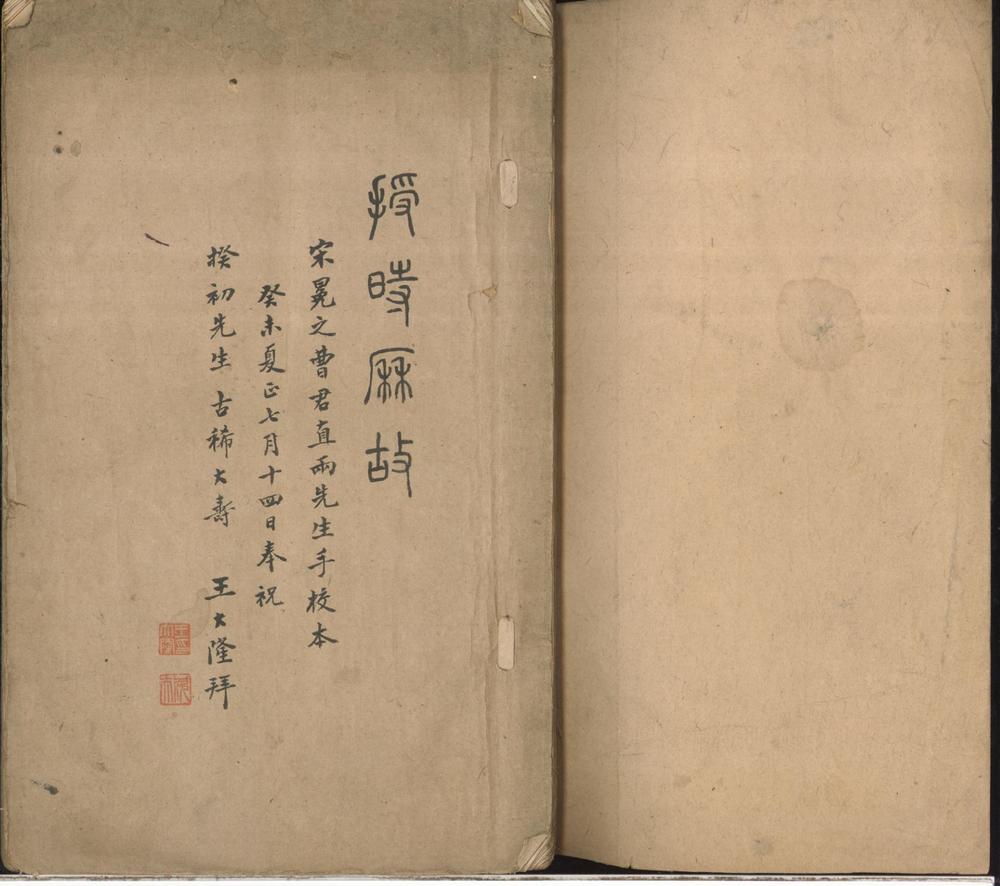 授時厤故
宋冕之曹君直兩先生手校本
癸未夏正七月十四日奉祝
揆初先生古稀大壽 王大隆拜